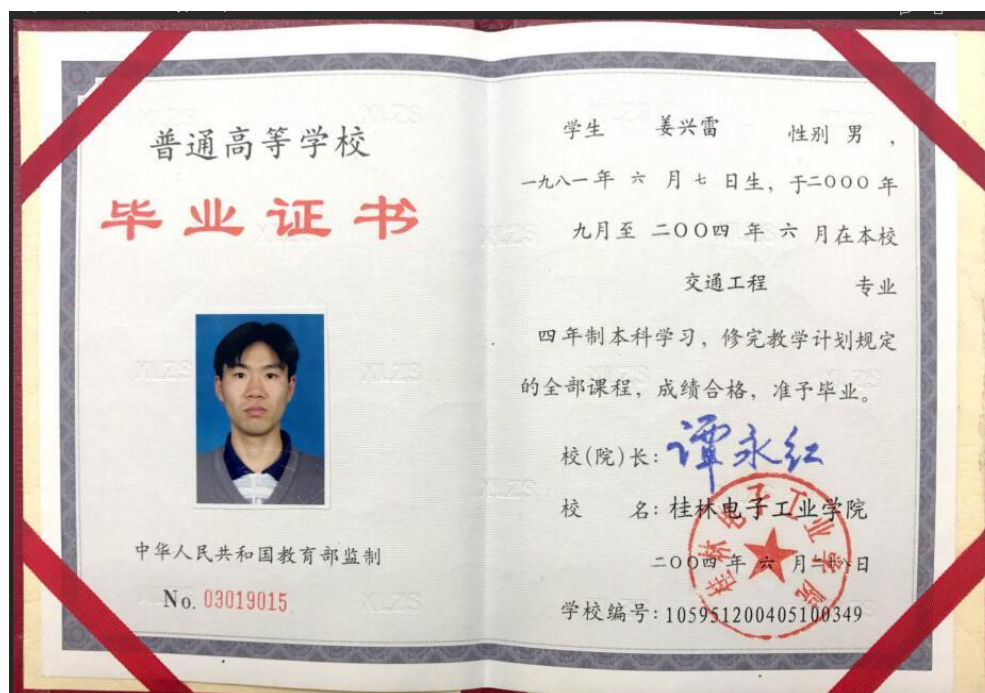 普通高等学校
毕业证书
中华人民共和国教育部监制
No. 03019015
学生 姜兴雷 性别 男，
一九八一年 六 月 七 日生，于二000 年
九月至 二00四 年 六 月在本校
交通工程 专业
四年制本科学习，修完教学计划规定
的全部课程，成绩合格，准予毕业。
校(院)长：谭永红
校 名：桂林电子工业学院
二00四 年 六 月二十八日
学校编号：105951200405100349
桂林电子工业学院
XLZS